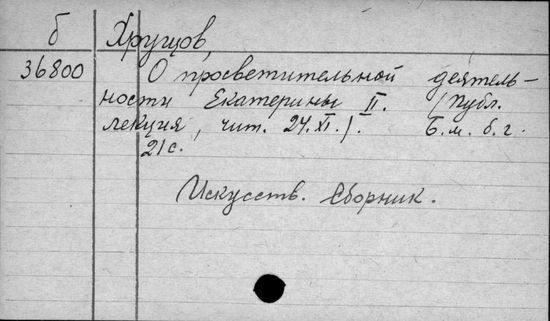 б Хрущов,
36800 О просветительной деятель-
ности Екатерины II. /Публ.
лекция, чит. 24.XI./. Б.м. б.г.
21с.
Искусств. Сборник.